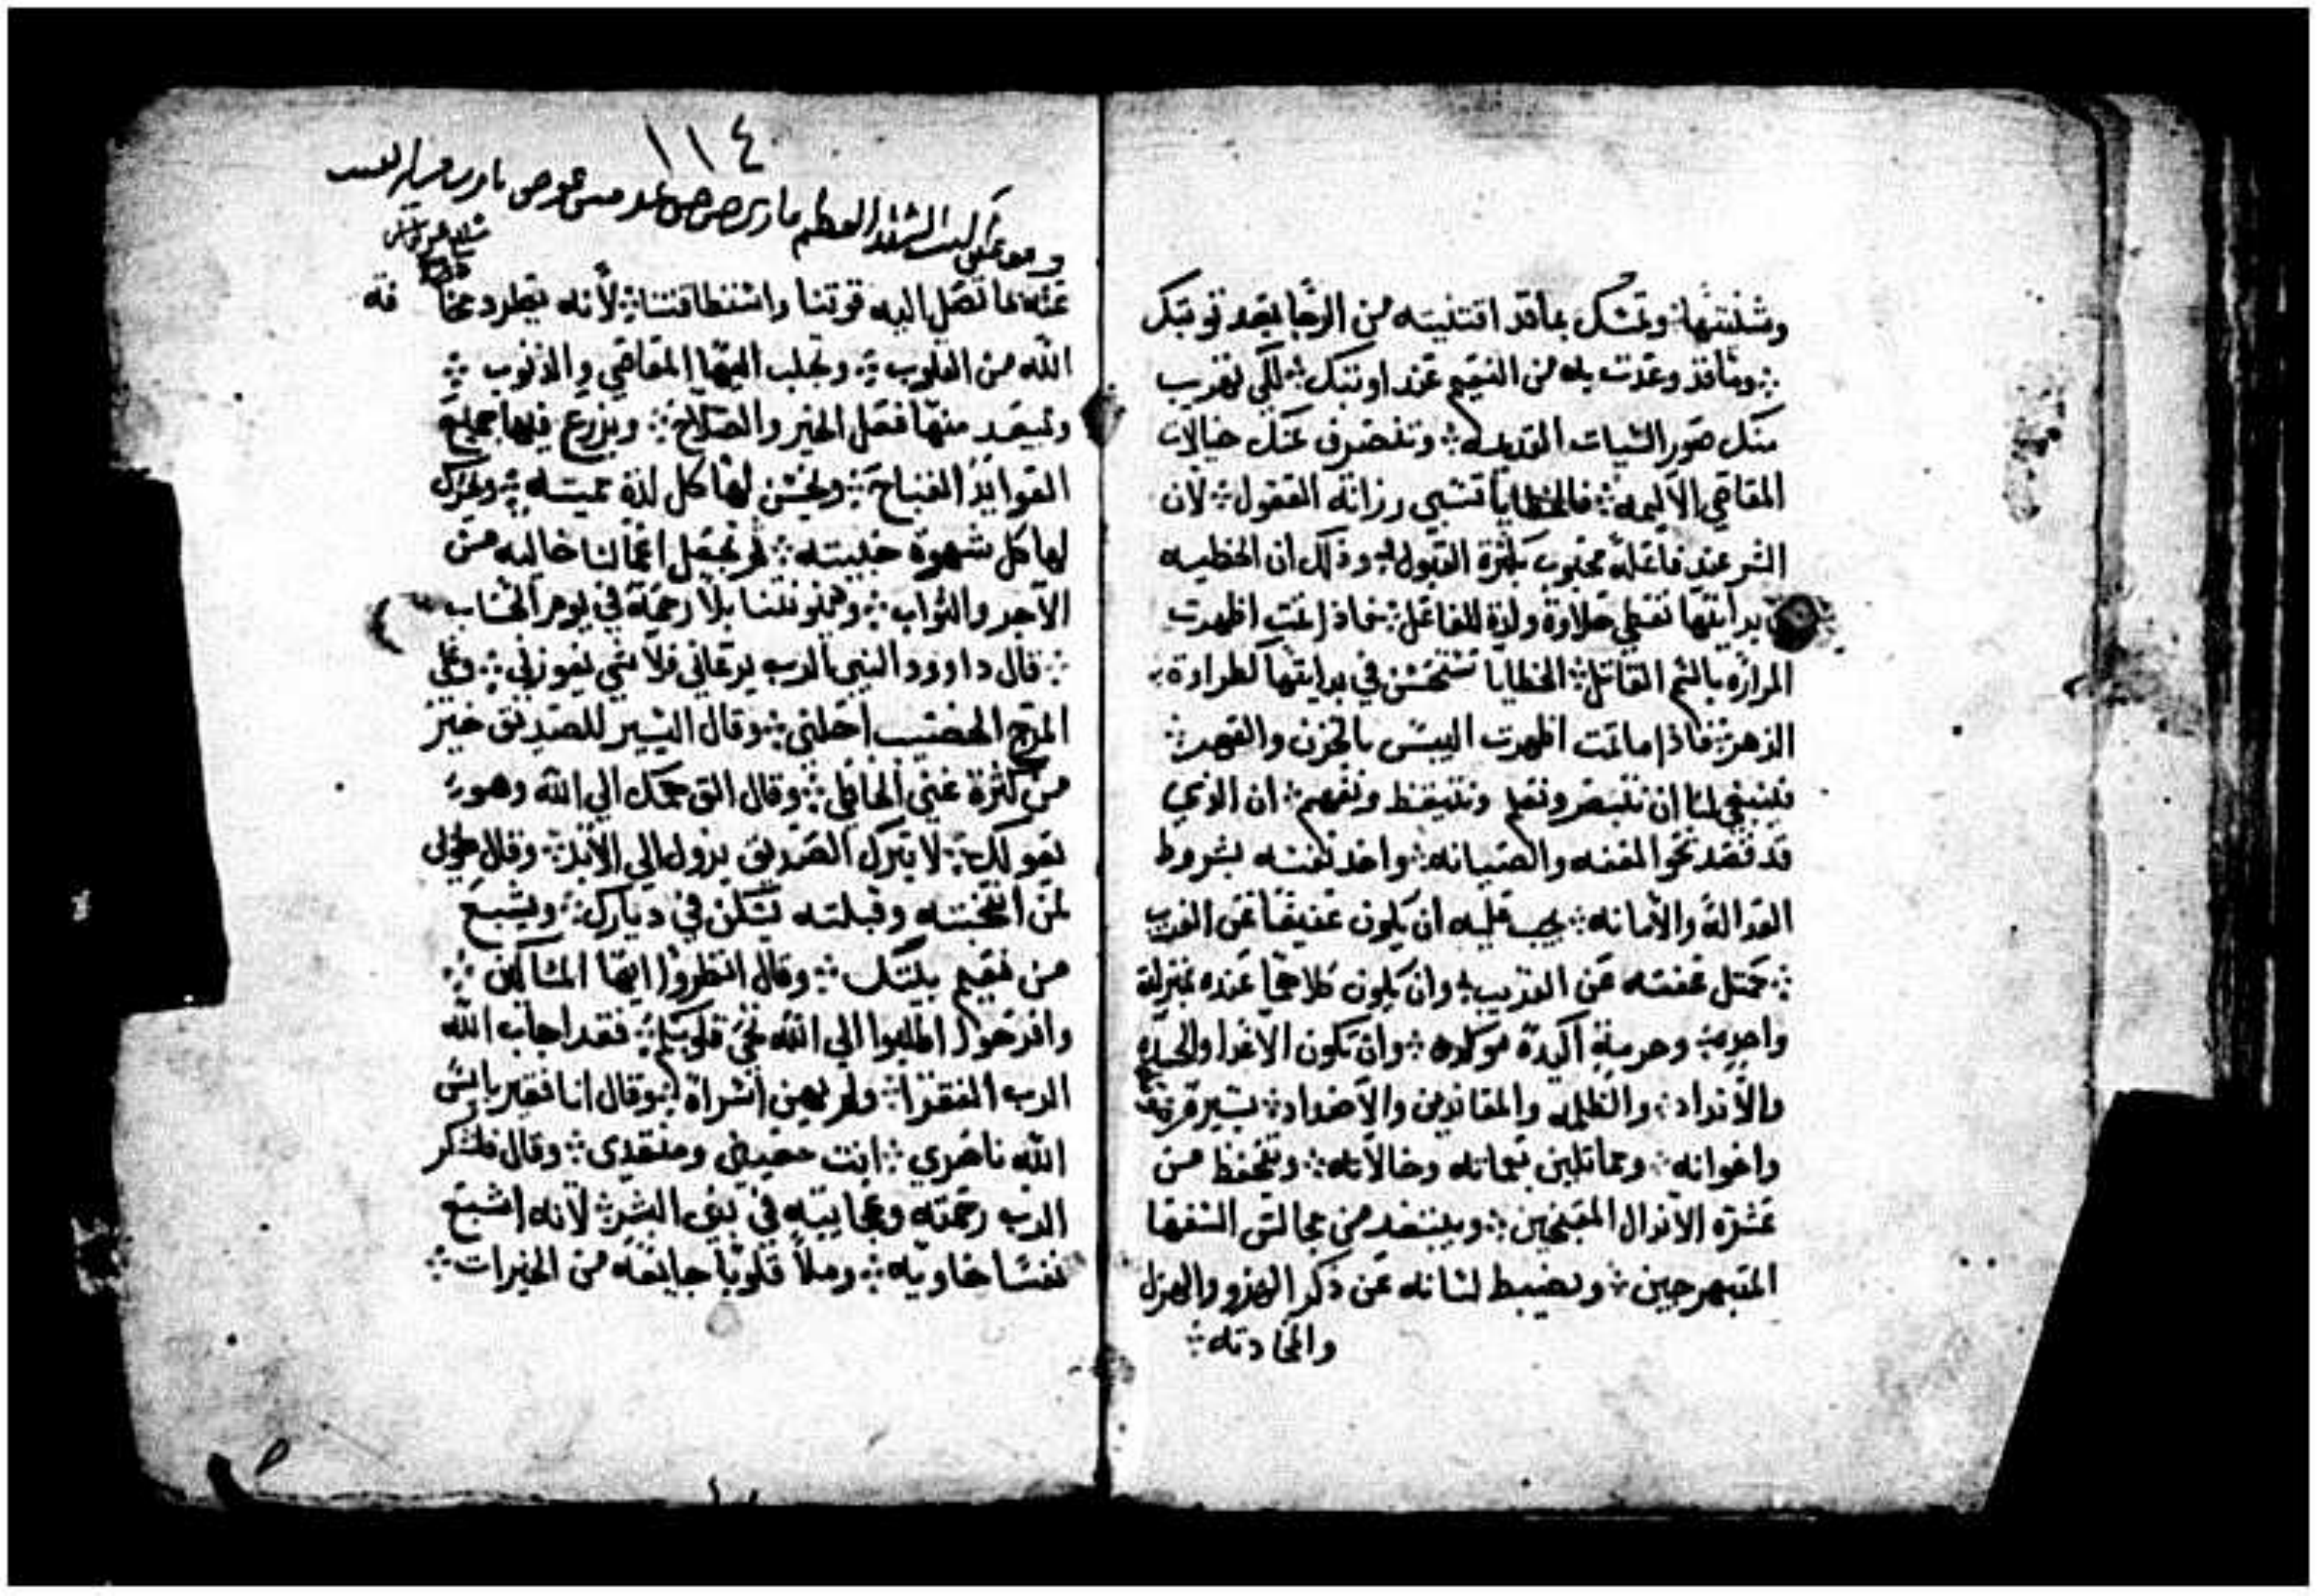 وتمسك بماقد اقتنيته من الرجا بعد توبتك
وماقد وعدت به من النعيم عند اوبتك لكي تهرب
منك صور السيات القديمه وتنصرف عنك خيالات
المعاصي الاليمه فالخطايا تسبي رزانة العقول لان
الشر عند فاعله محبوب بلذة القبول وذلك ان الخطيه
بدايتها تعطي حلاوة ولذة للفاعل فاذا تمت اظهرت
المراره بالسم القاتل الخطايا تستحسن في بدايتها لطراوة
الزهر فاذا ماتمت اظهرت اليبس بالحزن والقهر
فلينبغي لنا ان نتبصر ونعلم ونتيقظ ونفهم ان الذي
قد قصد نحو العفه والصيانه واخذ نفسه بشروط
العداله والامانه يجب عليه ان يكون عفيفا عن الغريب
كمثل عفته عن القريب وان يكون كلاهما عنده بمنزلة
واحده وحرمة اكيدة موكده وان تكون الاعدا
والانداد والظلمه والمعاندين والاضداد
واخوانه ومماثلين وخالاته ويتحفظ من
عشرة الاندال المقبحين ويبتعد من مجالس السفها
المتبهرجين ويضبط لسانه عن ذكر الهزو والهزل
والمحادثه
١١٤
عنه بما تصل اليه قوتنا واستطاعتنا لانه يطرد مخافة
الله من القلوب ويجلب اليها المعاصي والذنوب
ويبعد منها فعل الخير والصلاح ويزرع فيها جميع
العوايد القباح ويحسن لها كل لذة مميته ويحرك
لها كل شهوة خبيثه ثم يجعل اعمالنا خاليه من
الاجر والثواب بلا رحمة في يوم الحساب
قال داوود النبي الرب يرعاني فلا شي يعوزني وعلى
المرج الخصيب احلني وقال اليسير للصديق خير
من كثرة غني الخطاه وقال الق همك الي الله وهو
يعولك لا يترك الصديق يزول الي الابد وقال طوبى
لمن انتخبته وقبلته يسكن في ديارك ويشبع
من نعيم بيتك وقال انظروا ايها المساكين
وافرحوا اطلبوا الي الله تحيى قلوبكم فقد اجاب الله
الرب الفقرا ولم يهين اسراه وقال انا فقير بايس
الله ناصري انت معيني ومنقذي وقال فلتشكر
الرب رحمته وعجايبه في بني البشر لانه اشبع
نفسا خاويه وملا قلوبا جايعه من الخيرات